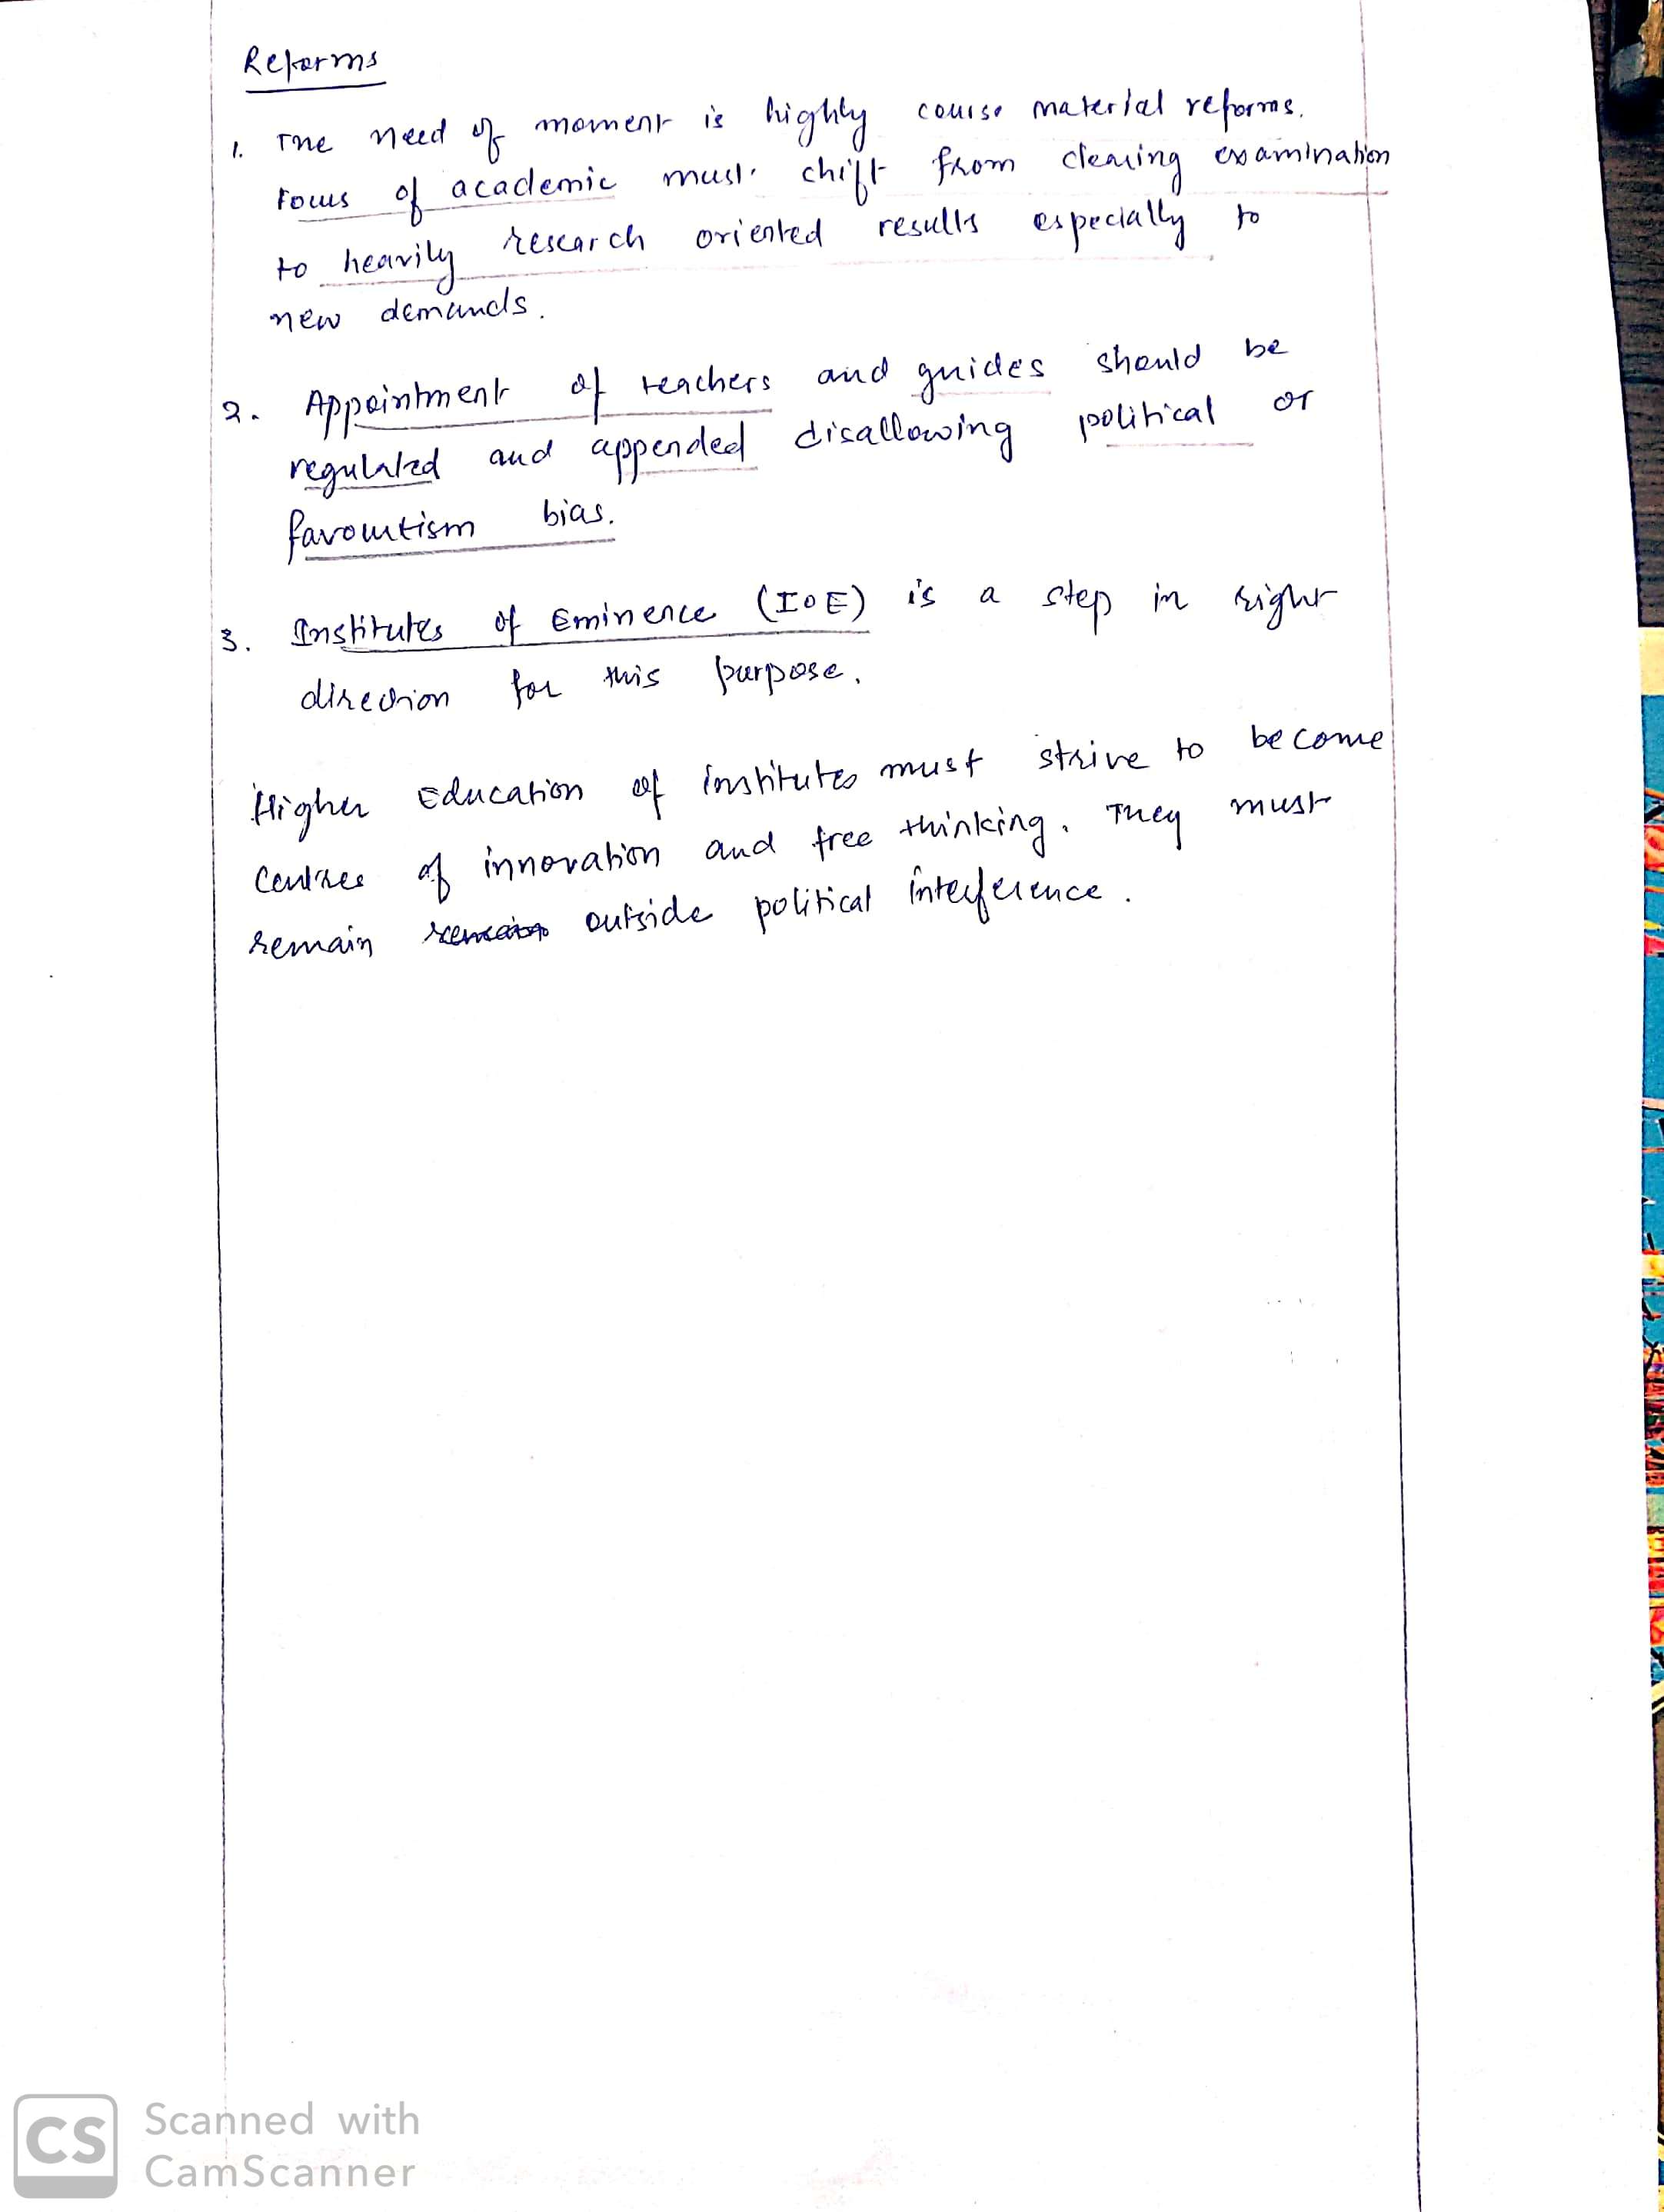 Reforms
1. The need of moment is highly course material reforms.
Focus of academic must chift from clearing examination
to heavily research oriented results especially to
new demands.
2. Appointment of teachers and guides should be
regulated and appended disallowing political or
favouritism bias.
3. Institutes of Eminence (IOE) is a step in right
direction for this purpose.
Higher Education of institutes must strive to become
centres of innovation and free thinking. They must
remain outside political interference.
CS Scanned with
CamScanner